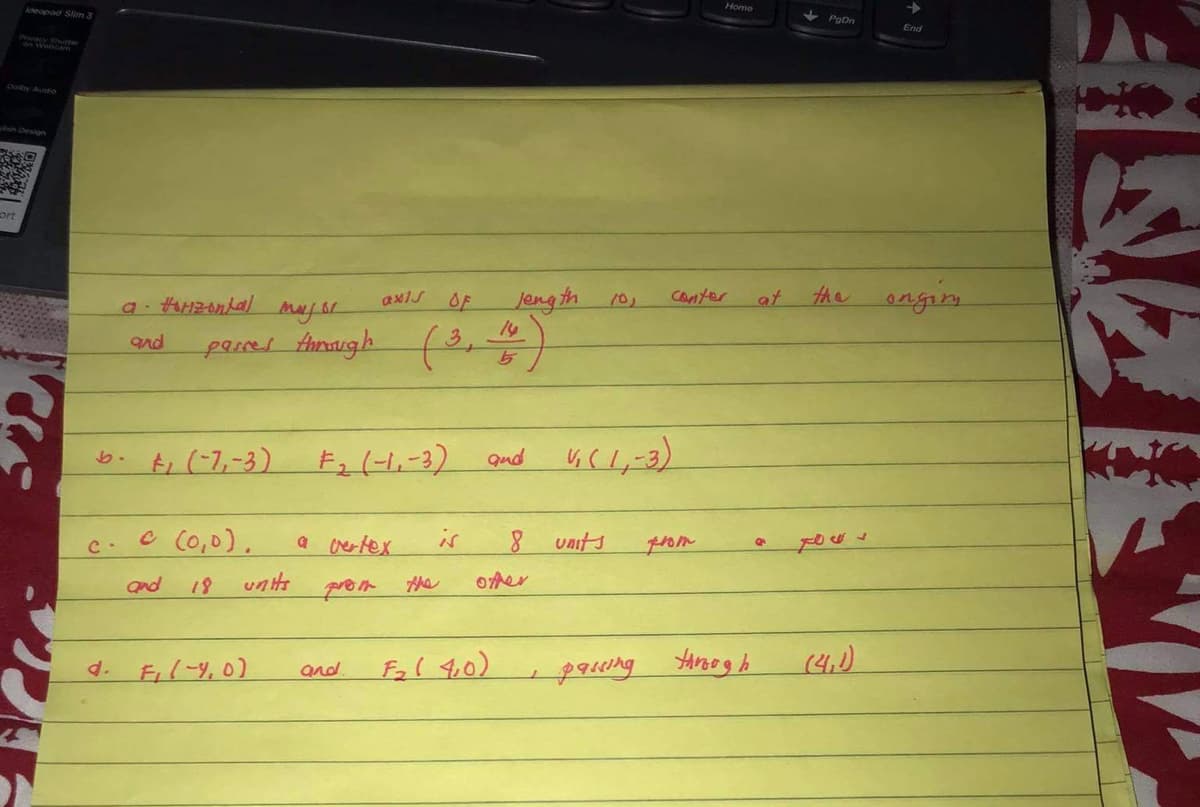 Ideapad Slim 3
Privacy Shutter
on Webcam
Dolby Audio
Home
PgDn
End
a. Horizontal major axis of length 10, center at the origin
and passes through (3, 16/5)
b. F₁ (-7,-3) F₂ (-1,-3) and V₁ (1,-3)
c. C (0,0). a vertex is 8 units from a focus
and 18 units from the other
d. F₁ (-4, 0) and F₂ (4,0), passing through (4,1)